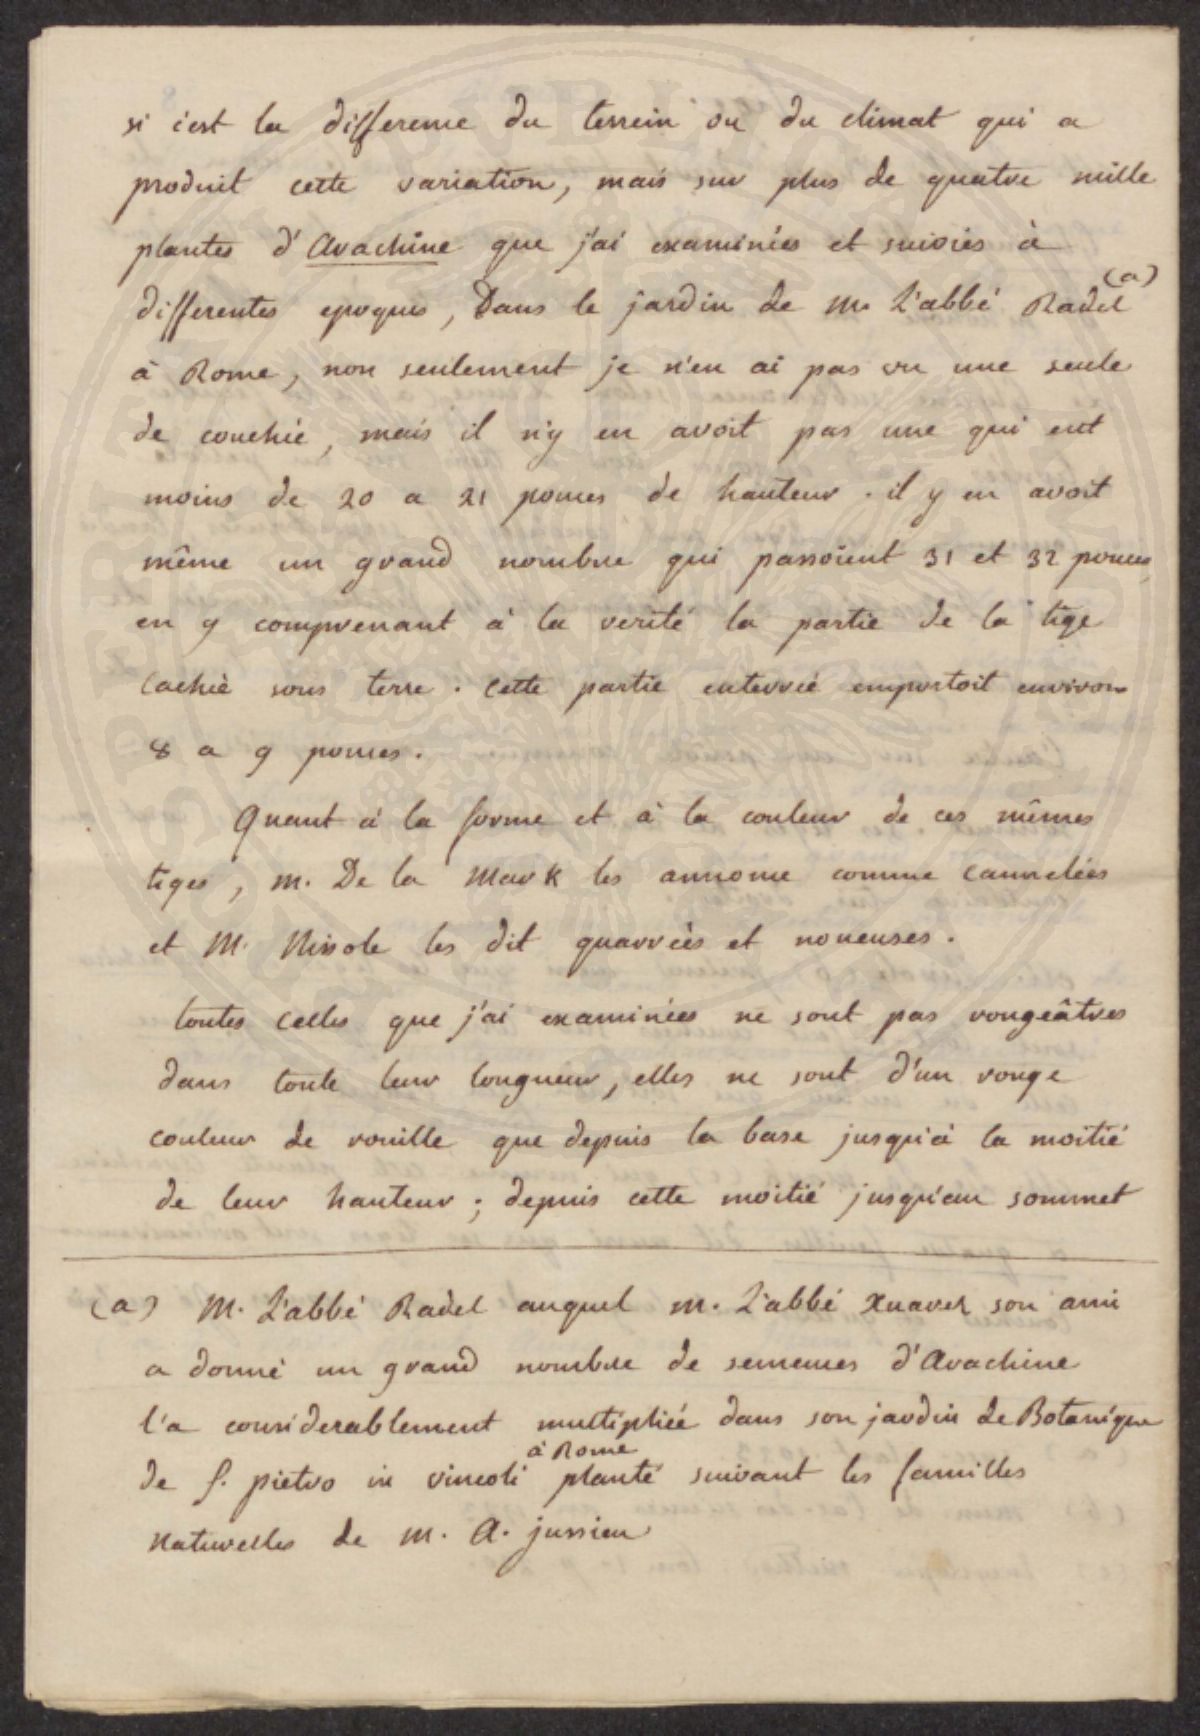 si c'est la difference du terrein ou du climat qui a
produit cette variation, mais sur plus de quatre mille
plantes d'Arachine que j'ai examinées et suivies à
differentes epoques, Dans le jardin de M. L'abbé Radel (a)
à Rome, non seulement je n'en ai pas vu une seule
de couchée, mais il n'y en avoit pas une qui eut
moins de 20 a 21 pouces de hauteur. il y en avoit
même un grand nombre qui passoient 31 et 32 pouces,
en y comprenant à la verité la partie de la tige
cachée sous terre. cette partie enterrée emportoit environ
8 a 9 pouces.
Quant à la forme et à la couleur de ces mêmes
tiges, M. De la Mark les annonce comme cannelées
et M. Nissole les dit quarrées et noueuses.
toutes celles que j'ai examinées ne sont pas rougeâtres
dans toute leur longueur, elles ne sont d'un rouge
couleur de rouille que depuis la base jusqu'à la moitié
de leur hauteur; depuis cette moitié jusqu'au sommet
(a) M. L'abbé Radel auquel M. L'abbé Xuarez son ami
a donné un grand nombre de semences d'Arachine
l'a considerablement multipliée dans son jardin de Botanique
à Rome
de S. pietro in vincoli planté suivant les familles
Naturelles de M. A. jussieu